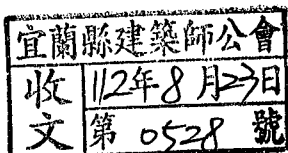 宜蘭縣建築師公會
收文
112年8月23日
第 0528 號